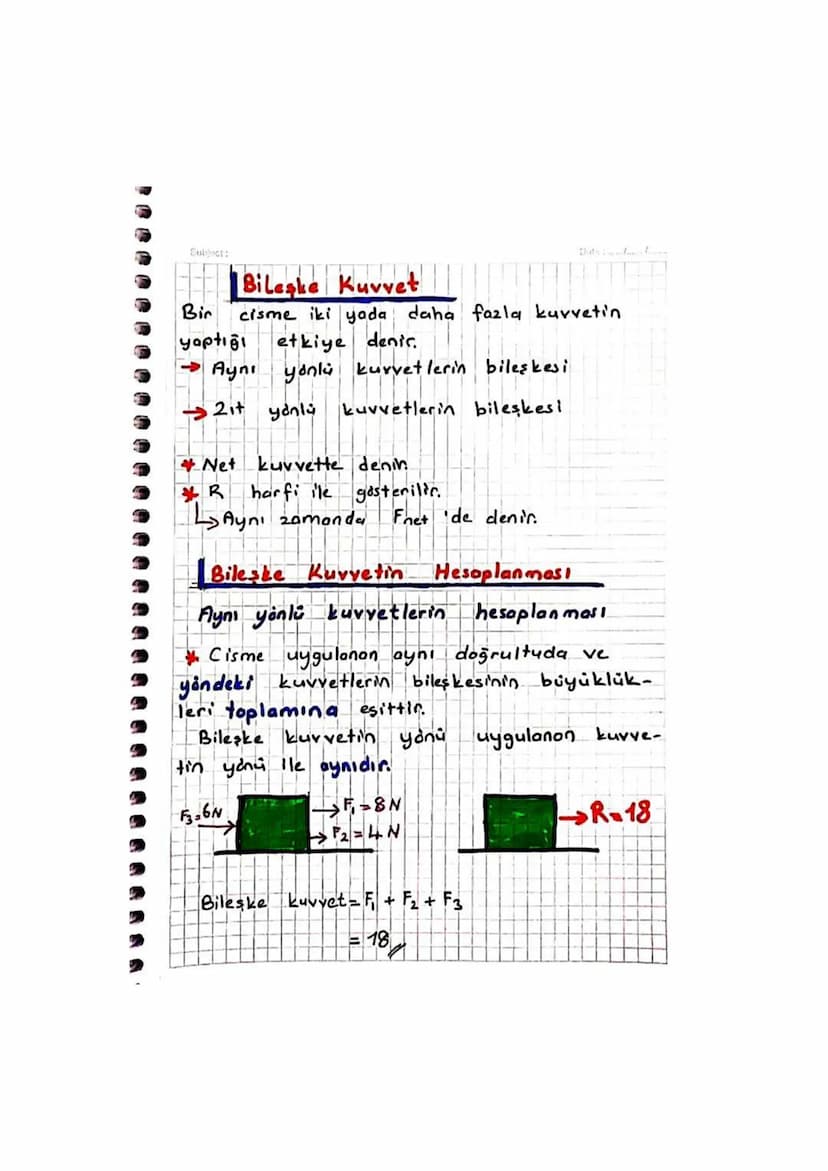 Subject:
Date :
Bileşke Kuvvet
Bir cisme iki yada daha fazla kuvvetin
yaptığı etkiye denir.
→ Aynı yönlü kuvvetlerin bileşkesi
→ Zıt yönlü kuvvetlerin bileşkesi
* Net kuvvette denir.
* R harfi ile gösterilir.
↳ Aynı zamanda Fnet 'de denir.
Bileşke Kuvvetin Hesaplanması
Aynı yönlü kuvvetlerin hesaplanması
* Cisme uygulanan aynı doğrultuda ve
yöndeki kuvvetlerin bileşkesinin büyüklük-
leri toplamına eşittir.
Bileşke kuvvetin yönü uygulanan kuvve-
tin yönü ile aynıdır.
F₃=6N → F₁=8N → R=18
→ F₂=4N
Bileşke kuvvet= F₁ + F₂ + F₃
= 18